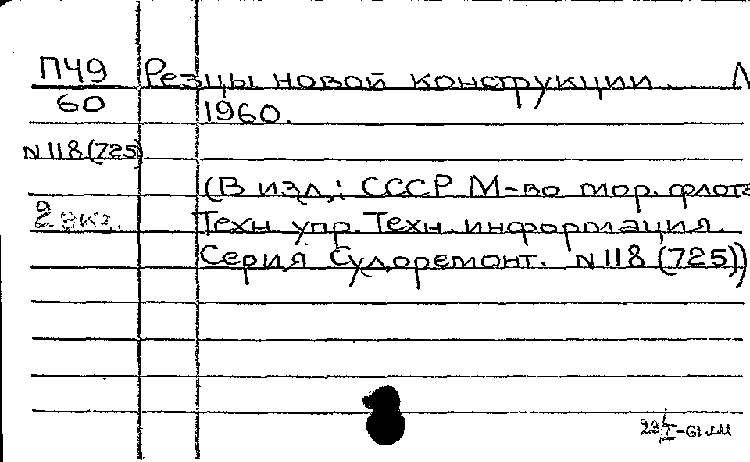 П49 Резцы новой конструкции.
60 1960.
N118(725)
(В изд.: СССР М-во мор. флота
2 экз. Техн. упр. Техн. информация.
Серия Судоремонт. N118 (725))